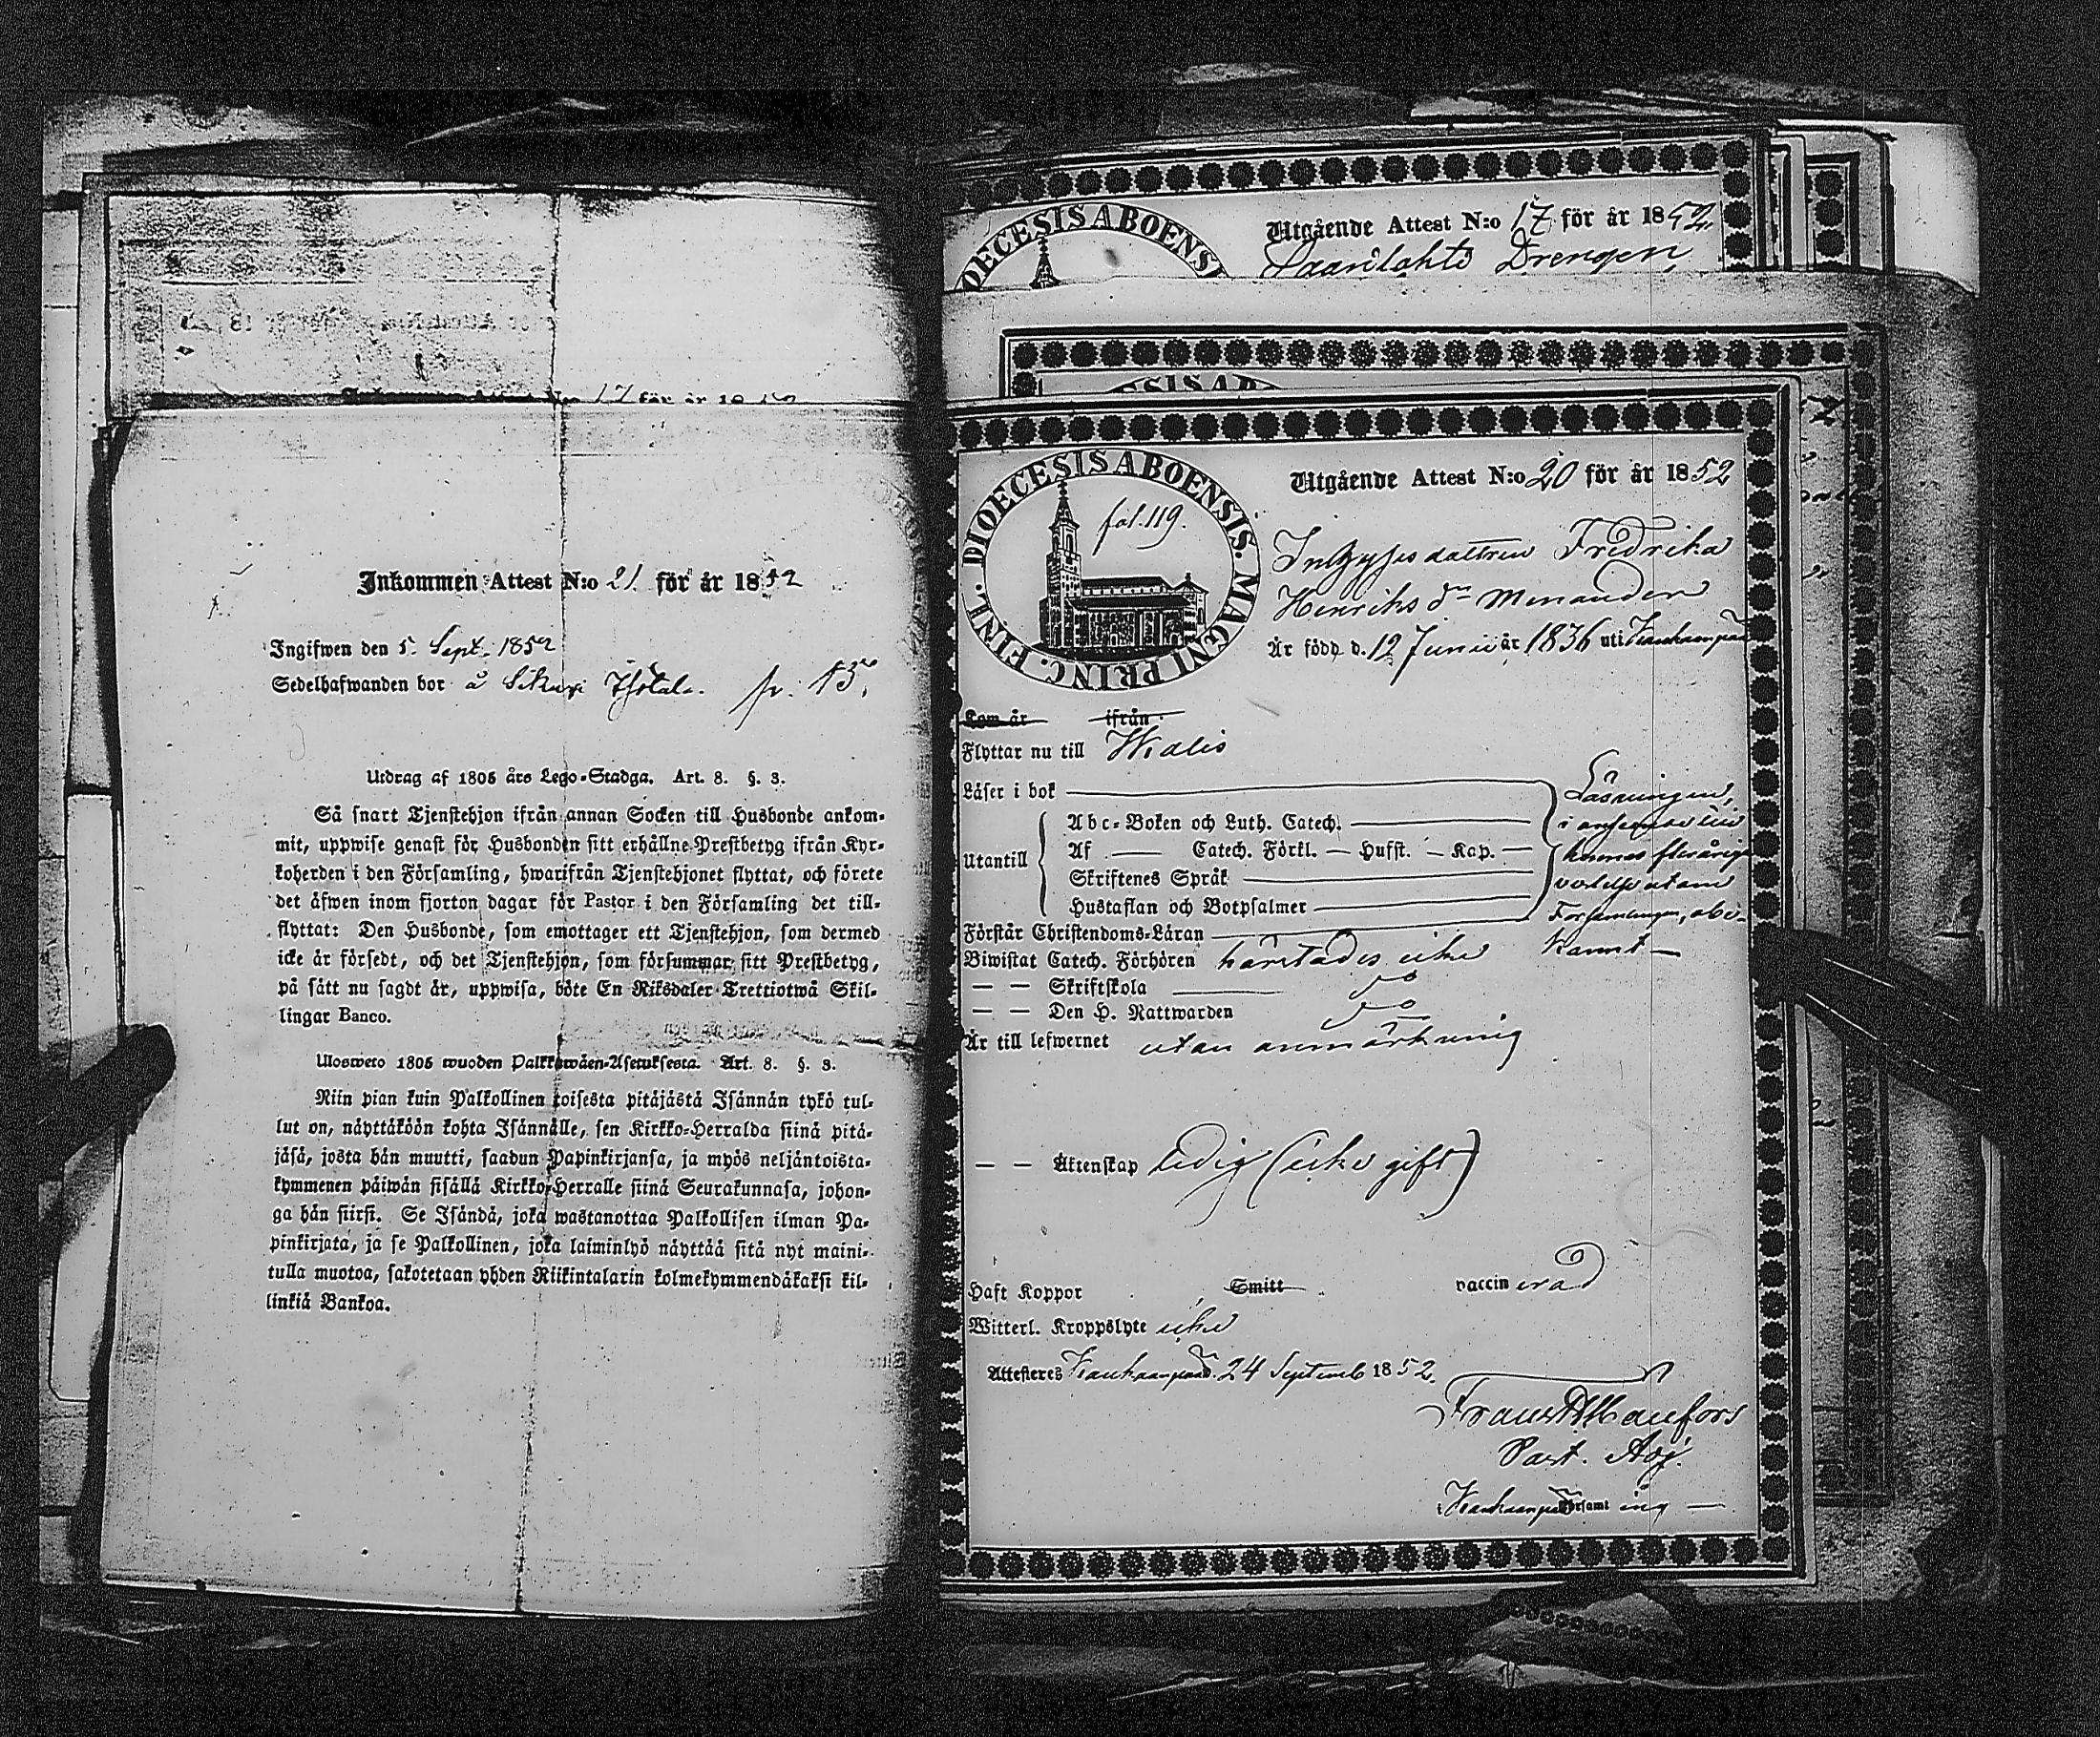 Inkommen Attest N:o 17 för år 1852
Inkommen Attest N:o 21. för år 1852
Ingifwen den 5. Sept. 1852
Sedelhafwanden bor å
Utdrag af 1805 års Lego-Stadga. Art. 8. §. 3.
Så snart Tjenstehjon ifrån annan Socken till Husbonde ankom-
mit, uppwise genast för Husbonden sitt erhållne Prestbetyg ifrån Kyr-
koherden i den Församling, hwarifrån Tjenstehjonet flyttat, och förete
det äfwen inom fjorton dagar för Pastor i den Församling det till-
flyttat: Den Husbonde, som emottager ett Tjenstehjon, som dermed
icke är försedt, och det Tjenstehjon, som försummar sitt Prestbetyg,
på sätt nu sagdt är, uppwisa, böte En Riksdaler Trettiotwå Skil-
lingar Banco.
Ulosweto 1805 wuoden Palkkawäen-Asetuksesta. Art. 8. §. 3.
Niin pian kuin Palkollinen toisesta pitäjästä Isännän tykö tul-
lut on, näyttäköön kohta Isännälle, sen Kirkko-Herralda siinä pitä-
jäsä, josta hän muutti, saadun Papinkirjansa, ja myös neljäntoista-
kymmenen päiwän sisällä Kirkko-Herralle siinä Seurakunnasa, johon-
ga hän siirsi. Se Isändä, joka wastanottaa Palkollisen ilman Pa-
pinkirjata, ja se Palkollinen, joka laiminlyö näyttää sitä nyt maini-
tulla muotoa, sakotetaan yhden Riikintalarin kolmekymmendäkaksi kil-
linkiä Bankoa.
DIOECESIS ABOENS
Utgående Attest N:o 17 för år 1852.
Saarilahti Drengen
DIOECESIS ABOENSIS. MAGNI PRINC. FINL.
fol. 119.
Utgående Attest N:o 20 för år 1852
Inhysesdottren Fredrika
Henriks dr Menander
Är född d. 12 Junii år 1836 uti Kankaanpää
Kom år ifrån
Flyttar nu till
Läser i bok
Utantill
Abc-Boken och Luth. Catech.
Af Catech. Förkl. Husst. Kap.
Skriftenes Språk
Hustaflan och Botpsalmer
Läsningen,
i anseende till
hennes fleråriga
vistelse utom
Församlingen, obe-
kannt
Förstår Christendoms-Läran
Biwistat Catech. Förhören härstädes icke
— — Skriftskola do
— — Den H. Nattwarden do
Är till lefwernet utan anmärkning
— — Äktenskap ledig (icke gift)
Haft Koppor Smitt vaccinerad
Witterl. Kroppslyte icke
Attesteres Kankaanpää d. 24 Septemb 1852.
Past. Adj.
Kankaanpää Församling